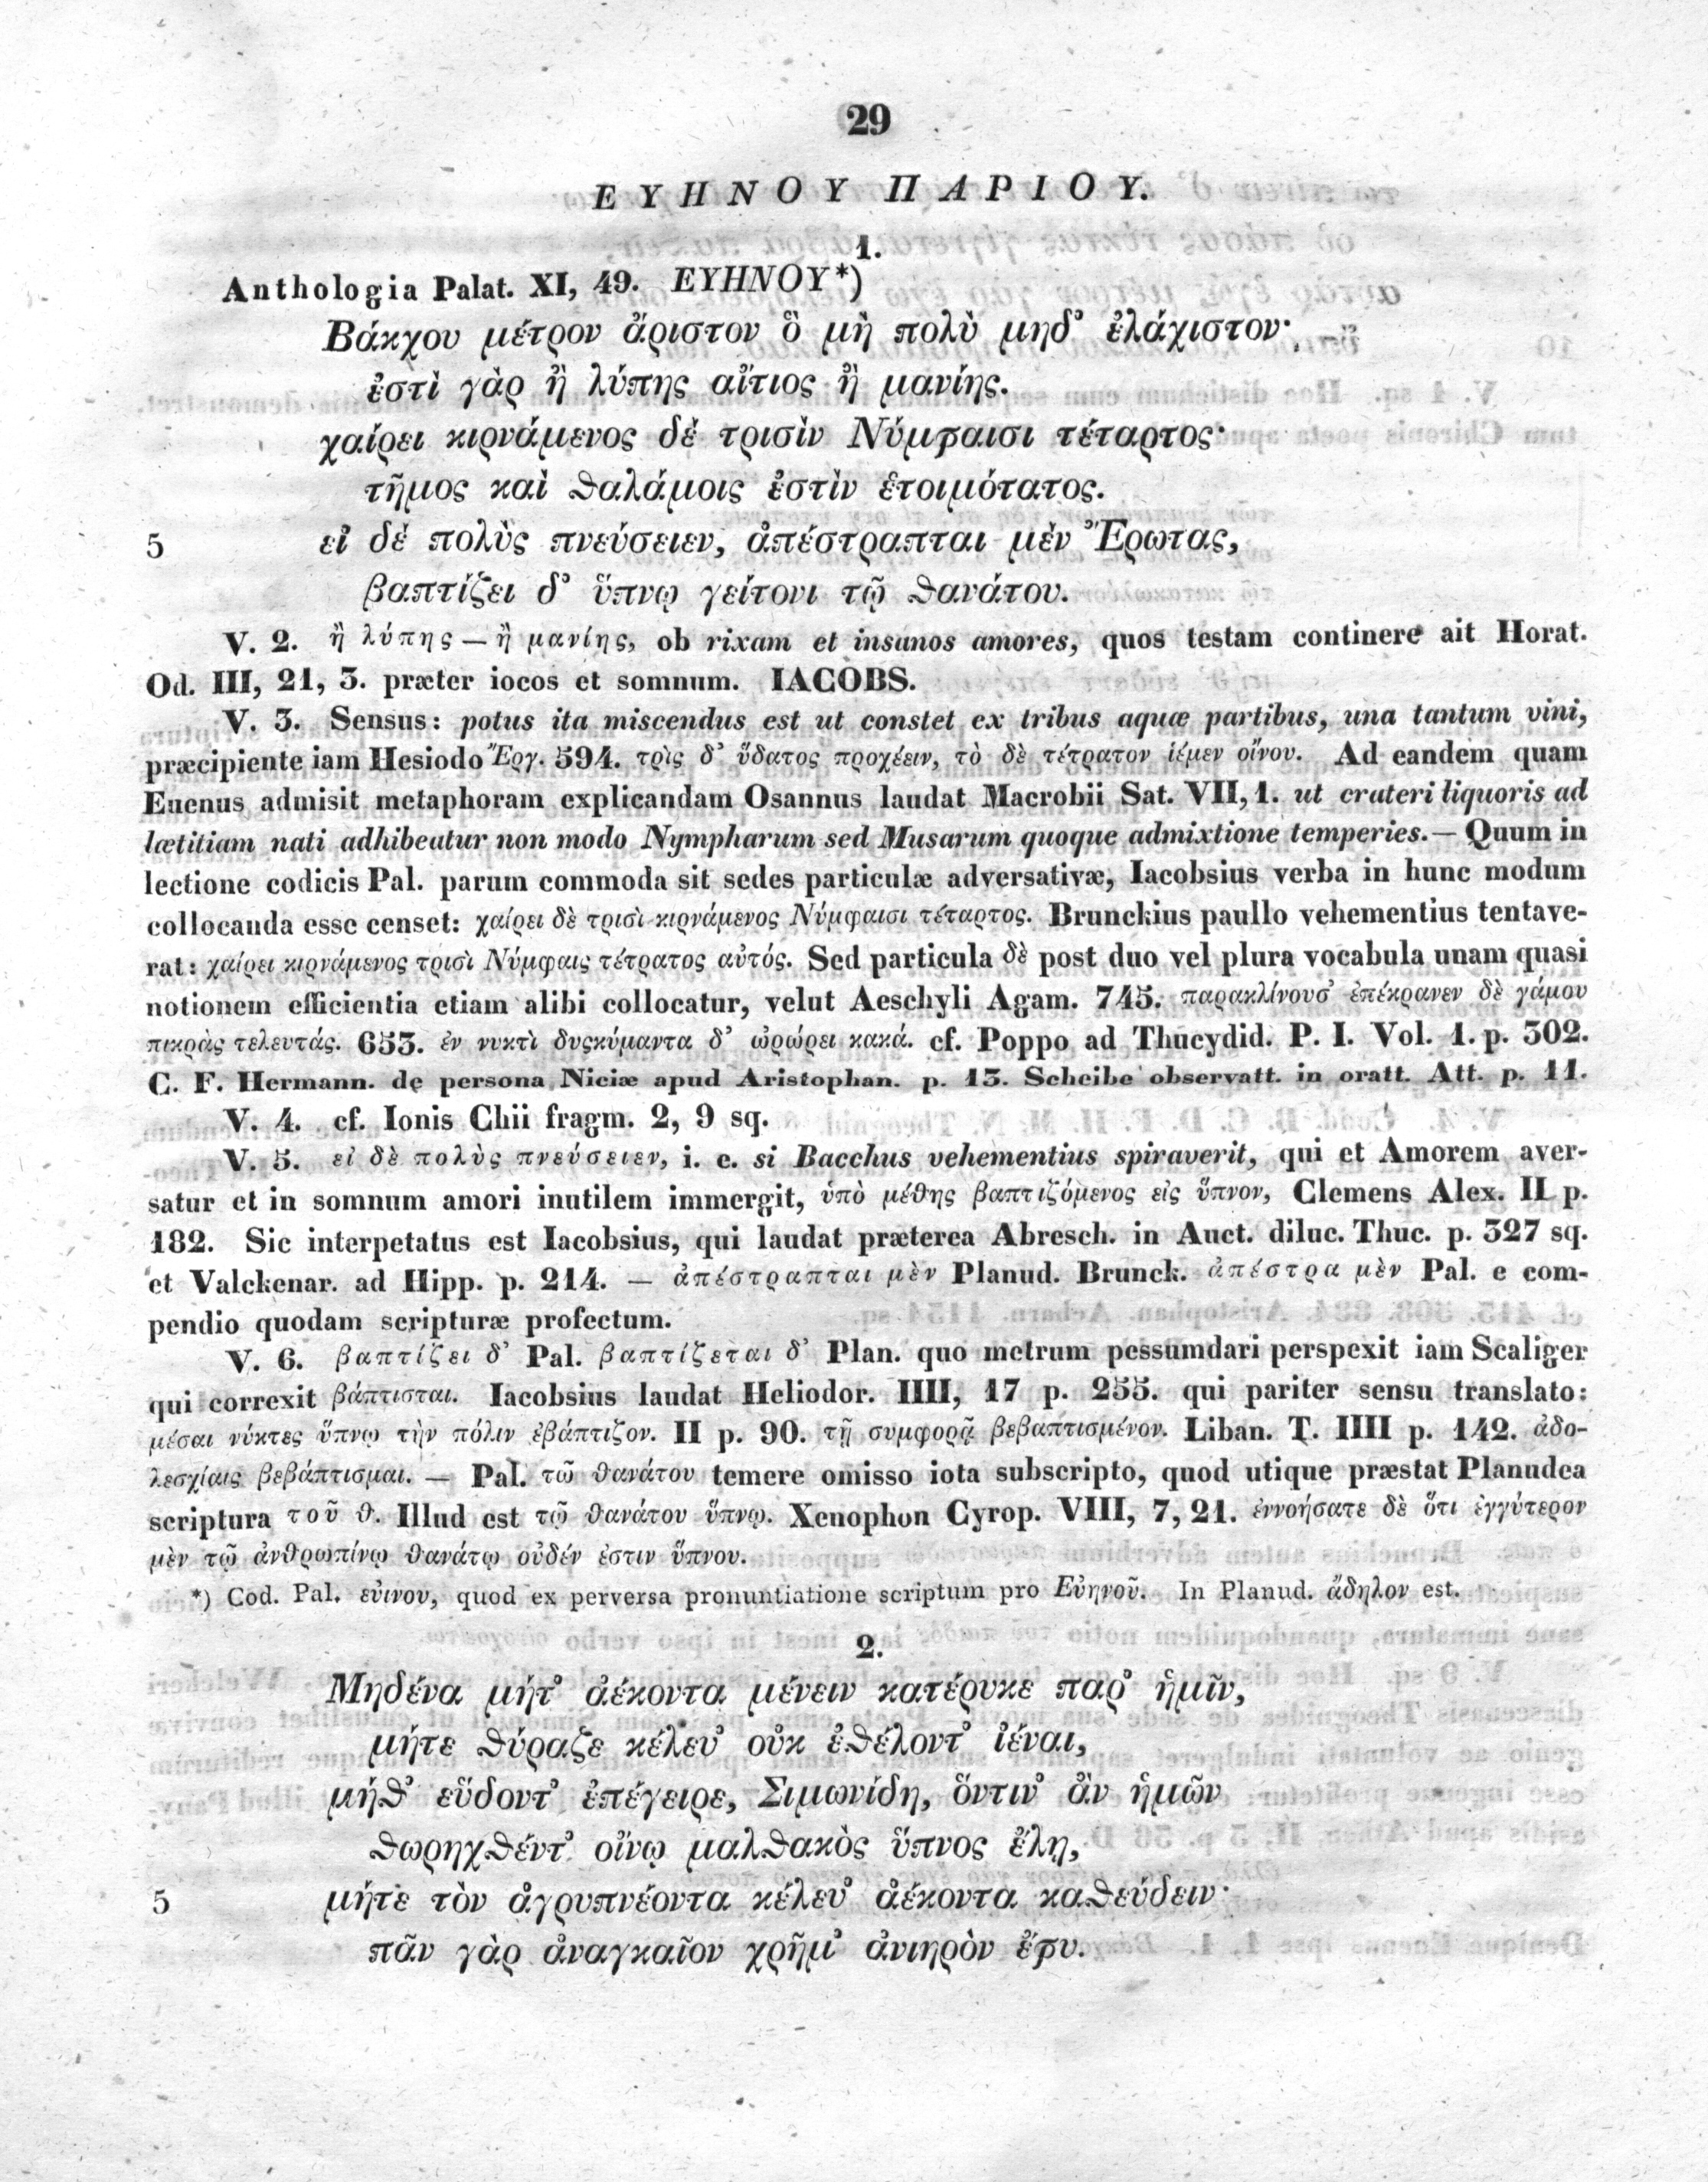 29
ΕΥΗΝΟΥ ΠΑΡΙΟΥ.
1.
Anthologia Palat. XI, 49. ΕΥΗΝΟΥ*)
Βάκχου μέτρον ἄριστον ὃ μὴ πολὺ μηδ᾽ ἐλάχιστον·
ἐστὶ γὰρ ἢ λύπης αἴτιος ἢ μανίης.
χαίρει κιρνάμενος δὲ τρισὶν Νύμφαισι τέταρτος·
τῆμος καὶ θαλάμοις ἐστὶν ἑτοιμότατος.
5 εἰ δὲ πολὺς πνεύσειεν, ἀπέστραπται μὲν Ἔρωτας,
βαπτίζει δ᾽ ὕπνῳ γείτονι τῷ θανάτου.
V. 2. ἢ λύπης — ἢ μανίης, ob rixam et insanos amores, quos testam continere ait Horat.
Od. III, 21, 3. præter iocos et somnum. IACOBS.
V. 3. Sensus: potus ita miscendus est ut constet ex tribus aquæ partibus, una tantum vini,
præcipiente iam Hesiodo Ἔργ. 594. τρὶς δ᾽ ὕδατος προχέειν, τὸ δὲ τέτρατον ἱέμεν οἴνου. Ad eandem quam
Euenus admisit metaphoram explicandam Osannus laudat Macrobii Sat. VII, 1. ut crateri liquoris ad
lætitiam nati adhibeatur non modo Nympharum sed Musarum quoque admixtione temperies. — Quum in
lectione codicis Pal. parum commoda sit sedes particulæ adversativæ, Iacobsius verba in hunc modum
collocanda esse censet: χαίρει δὲ τρισὶ κιρνάμενος Νύμφαισι τέταρτος. Brunckius paullo vehementius tentave-
rat: χαίρει κιρνάμενος τρισὶ Νύμφαις τέτρατος αὐτός. Sed particula δὲ post duo vel plura vocabula unam quasi
notionem efficientia etiam alibi collocatur, velut Aeschyli Agam. 745. παρακλίνουσ᾽ ἐπέκρανεν δὲ γάμου
πικρὰς τελευτάς. 653. ἐν νυκτὶ δυςκύμαντα δ᾽ ὠρώρει κακά. cf. Poppo ad Thucydid. P. I. Vol. 1. p. 302.
C. F. Hermann. de persona Niciæ apud Aristophan. p. 13. Scheibe observatt. in oratt. Att. p. 11.
V. 4. cf. Ionis Chii fragm. 2, 9 sq.
V. 5. εἰ δὲ πολὺς πνεύσειεν, i. e. si Bacchus vehementius spiraverit, qui et Amorem aver-
satur et in somnum amori inutilem immergit, ὑπὸ μέθης βαπτιζόμενος εἰς ὕπνον, Clemens Alex. II p.
182. Sic interpetatus est Iacobsius, qui laudat præterea Abresch. in Auct. diluc. Thuc. p. 327 sq.
et Valckenar. ad Hipp. p. 214. — ἀπέστραπται μὲν Planud. Brunck. ἀπέστρα μὲν Pal. e com-
pendio quodam scripturæ profectum.
V. 6. βαπτίζει δ᾽ Pal. βαπτίζεται δ᾽ Plan. quo metrum pessumdari perspexit iam Scaliger
qui correxit βάπτισται. Iacobsius laudat Heliodor. IIII, 17 p. 255. qui pariter sensu translato:
μέσαι νύκτες ὕπνῳ τὴν πόλιν ἐβάπτιζον. II p. 90. τῇ συμφορᾷ βεβαπτισμένον. Liban. T. IIII p. 142. ἀδο-
λεσχίαις βεβάπτισμαι. — Pal. τῶ θανάτου temere omisso iota subscripto, quod utique præstat Planudea
scriptura τοῦ θ. Illud est τῷ θανάτου ὕπνῳ. Xenophon Cyrop. VIII, 7, 21. ἐννοήσατε δὲ ὅτι ἐγγύτερον
μὲν τῷ ἀνθρωπίνῳ θανάτῳ οὐδέν ἐστιν ὕπνου.
*) Cod. Pal. εὐινου, quod ex perversa pronuntiatione scriptum pro Εὐηνοῦ. In Planud. ἄδηλον est.
2.
Μηδένα μήτ᾽ ἀέκοντα μένειν κατέρυκε παρ᾽ ἡμῖν,
μήτε θύραζε κέλευ᾽ οὐκ ἐθέλοντ᾽ ἰέναι,
μήθ᾽ εὕδοντ᾽ ἐπέγειρε, Σιμωνίδη, ὅντιν᾽ ἂν ἡμῶν
θωρηχθέντ᾽ οἴνῳ μαλθακὸς ὕπνος ἕλῃ,
5 μήτε τὸν ἀγρυπνέοντα κέλευ᾽ ἀέκοντα καθεύδειν·
πᾶν γὰρ ἀναγκαῖον χρῆμ᾽ ἀνιηρὸν ἔφυ.